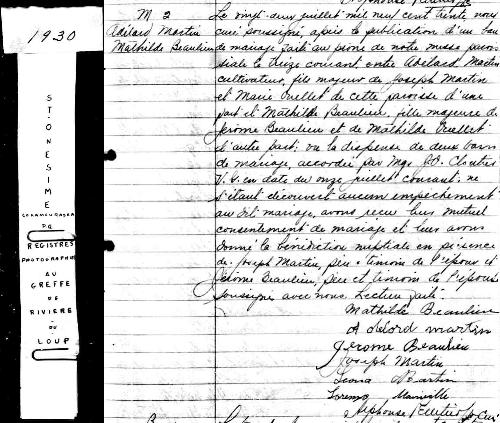 1930
ST ONESIME
CO KAMOURASKA
PQ
REGISTRES
PHOTOGRAPHIES
AU
GREFFE
DE
RIVIERE
DU
LOUP
M 2
Adélard Martin
Mathilde Beaulieu
Le vingt-deux juillet mil neuf cent trente nous
curé soussigné, après la publication d'un ban
de mariage faite au prône de notre messe parois-
siale le treize courant entre Adélard Martin
cultivateur, fils majeur de Joseph Martin
et Marie Ouellet de cette paroisse d'une
part et Mathilde Beaulieu, fille majeure de
Jérome Beaulieu et de Mathilde Ouellet
d'autre part; vu la dispense de deux bans
de mariage, accordée par Mgr Cloutier
V. G. en date du onze juillet courant; ne
s'étant découvert aucun empêchement
au dit mariage, avons reçu leur mutuel
consentement de mariage et leur avons
donné la bénédiction nuptiale en présence
de Joseph Martin, père & témoin de l'époux et
Jérome Beaulieu, père et témoin de l'épouse
soussignés avec nous. Lecture faite.
Mathilde Beaulieu
Adélord martin
Jérome Beaulieu
Joseph Martin
Leona Martin
Alphonse Pelletier Ptre Curé